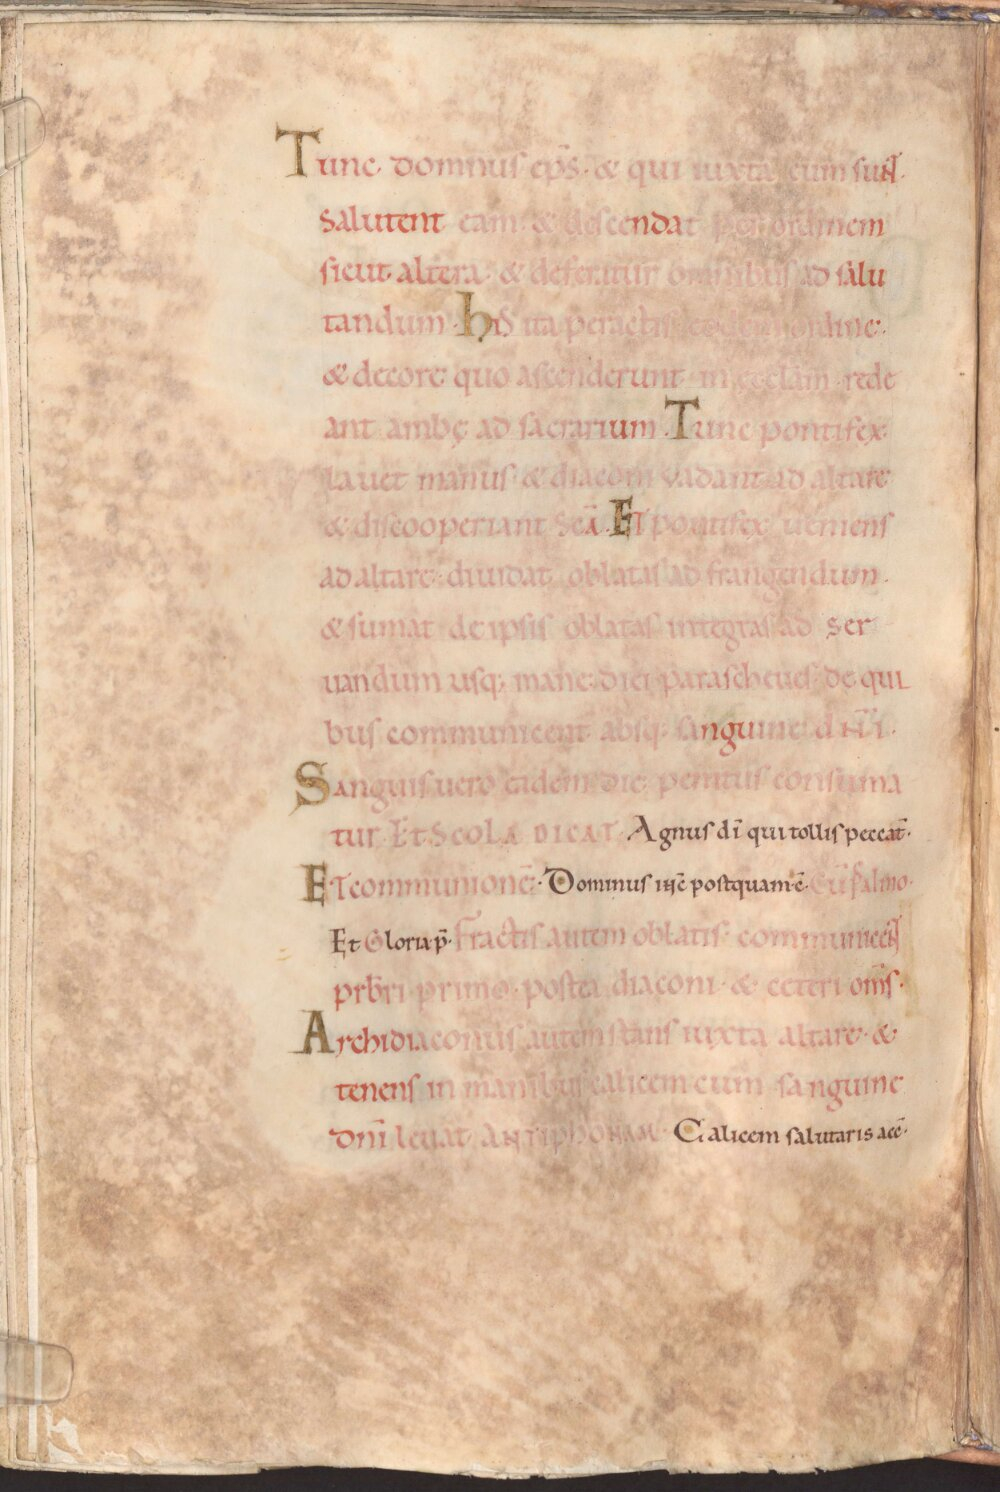 Tunc domnus ep̄s · & qui iuxta eum sunt ·
Salutent eam · & descendat per ordinem
sicut altera · & deferatur omnibus ad salu
tandum · his ita peractis eodem ordine ·
& decore quo ascenderunt in ecclam̄ rede
ant ambę ad sacrarium . Tunc pontifex
lauet manus & diaconi vadant ad altare
& discooperiant Scā . Et pontifex ueniens
ad altare · diuidat oblatas ad frangendum .
& sumat de ipsis oblatas integras ad ser
uandum usq; mane · diei parascheues · de qui
bus communicent absq; sanguine dn̄i .
Sanguis uero eidem die penitus consuma
tur Et Scola dicat . Agnus dī qui tollis peccat̄ ·
Et communione · Dominus ihc̄ postquam c̄ · Cū psalmo ·
Et Gloria p̄ · Fractis autem oblatis · communicent
prb̄ri primo · postea diaconi · & ceteri om̄s ·
Archidiaconus autem stans iuxta altare · &
tenens in manibus calicem cum sanguine
dn̄i leuat antiphonam · Calicem salutaris acc̄ ·